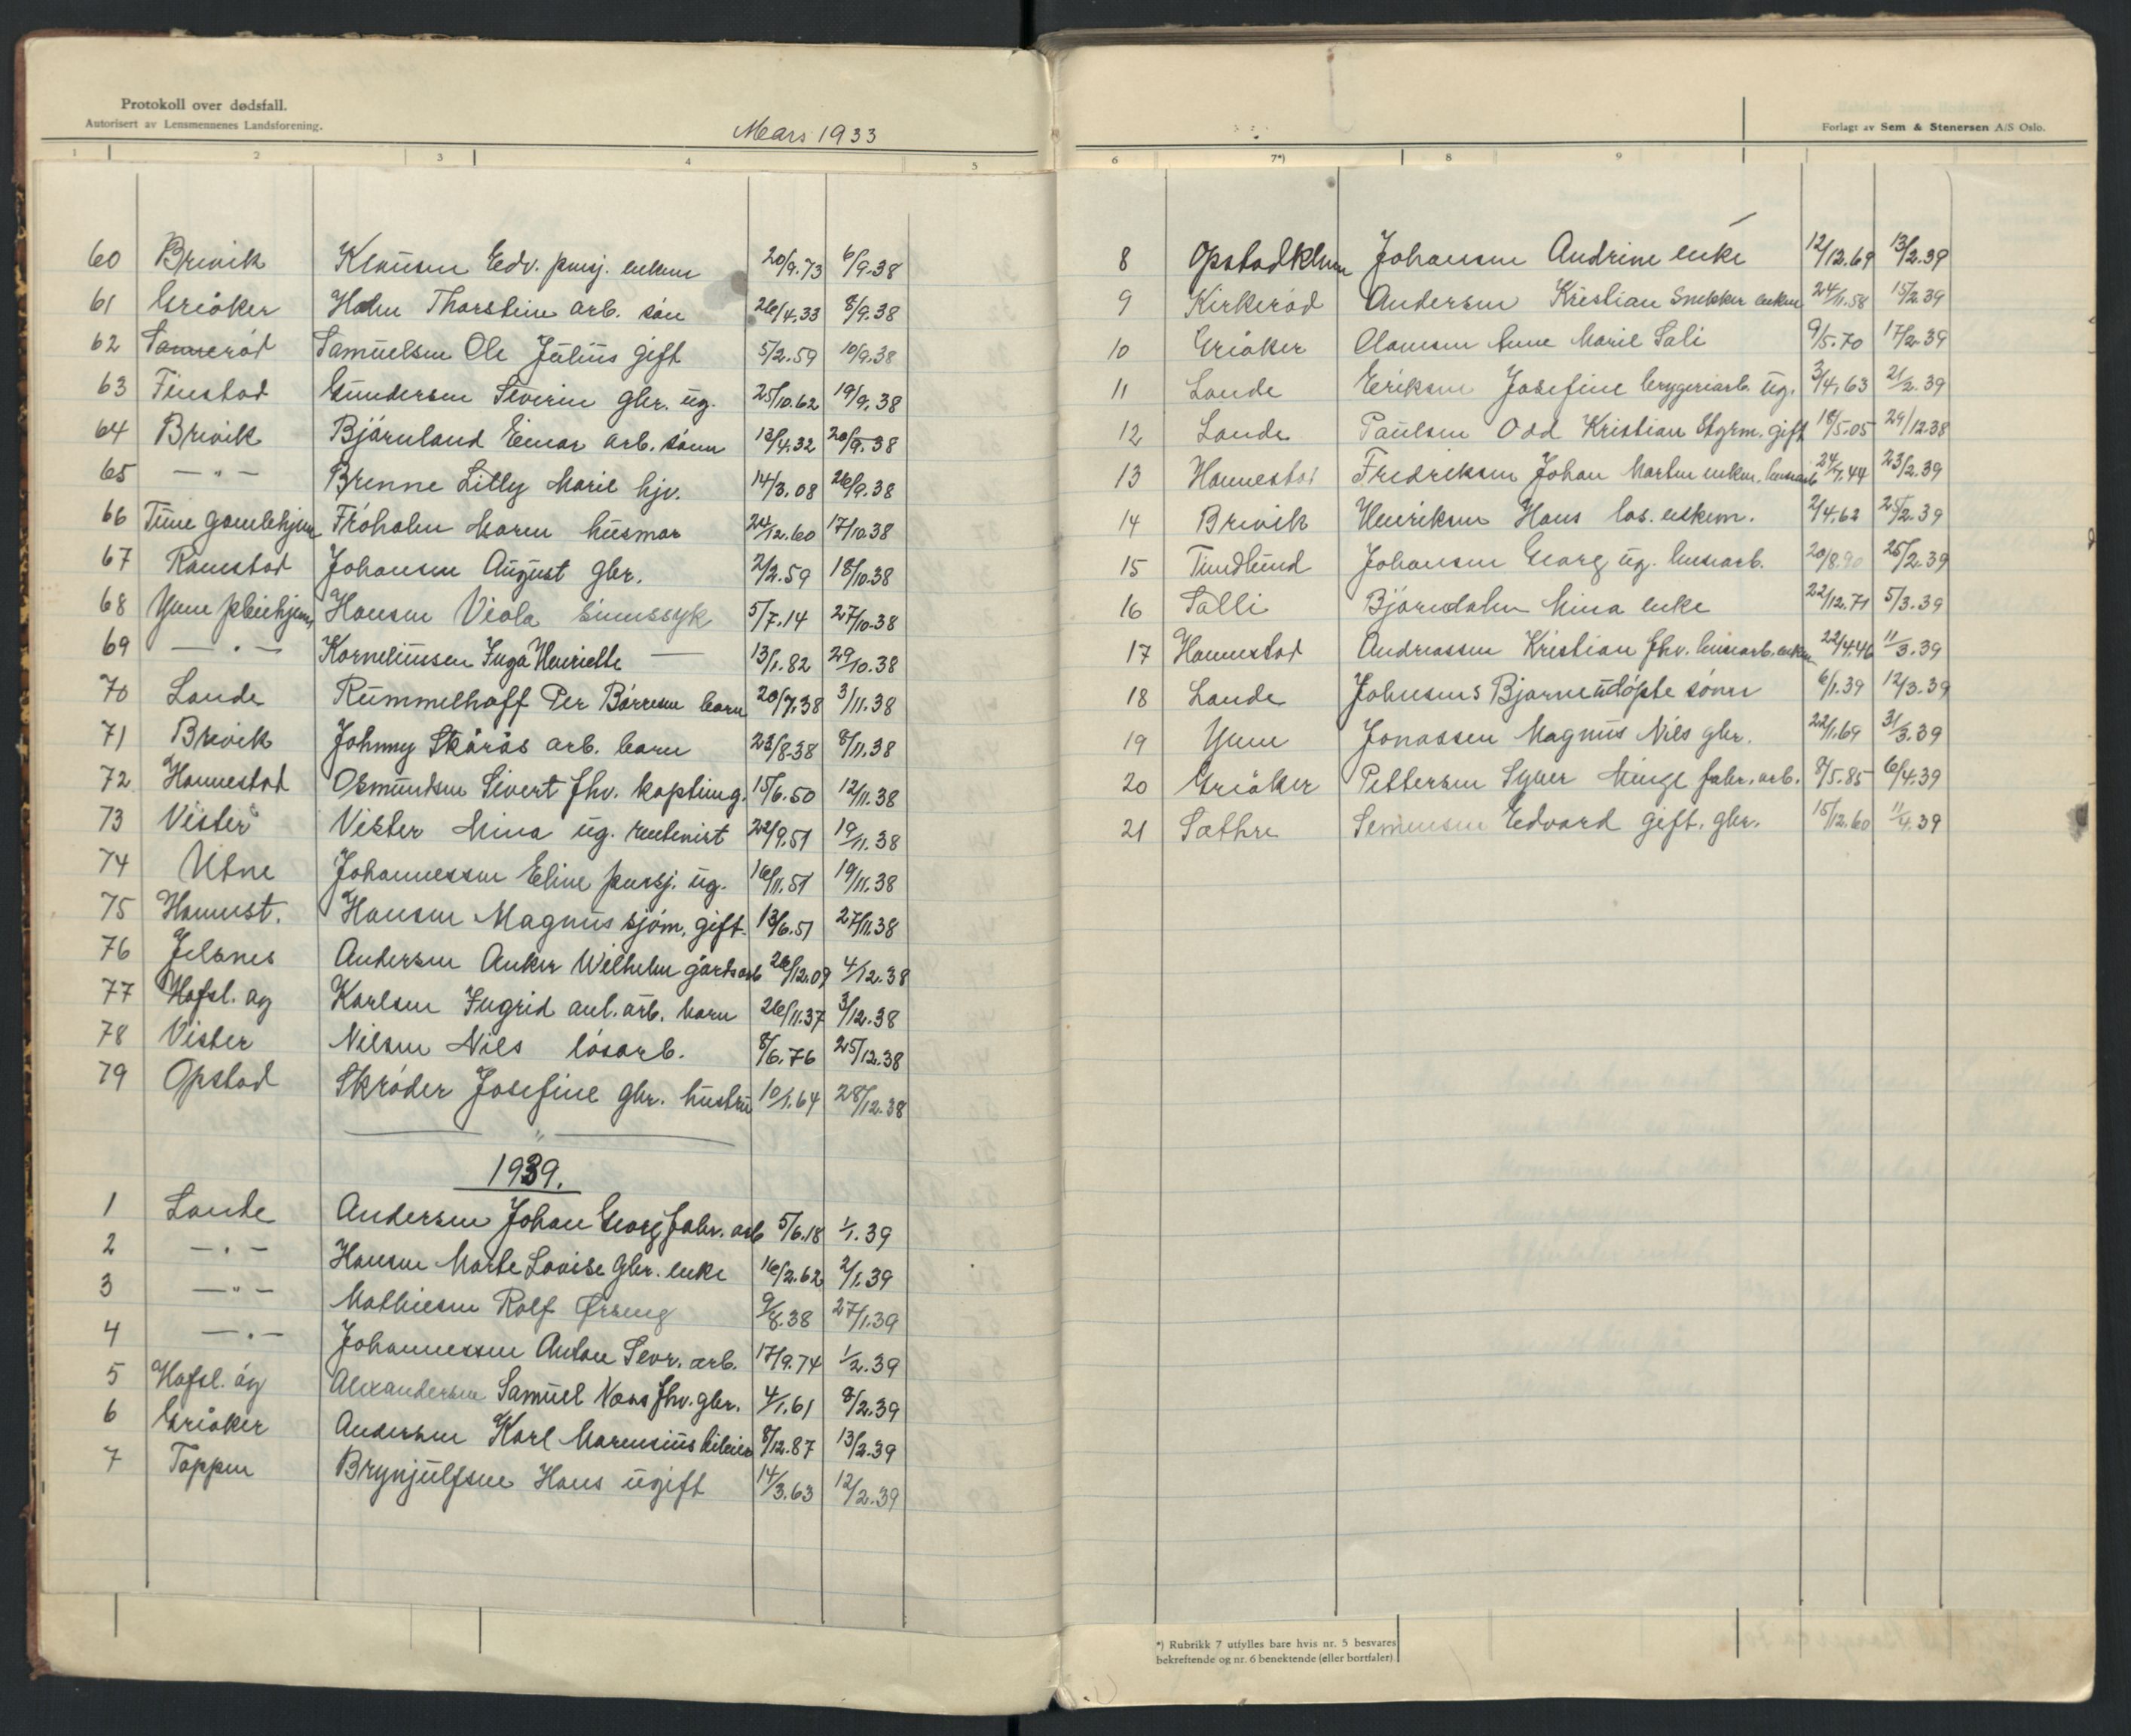 Protokoll over dødsfall.
Autorisert av Lensmennenes Landsforening.
Mars 1933
1 2 3 4 5
60 Brevik Klausen Edv. pensj. enkem 20/9.73 6/9.38
61 Greåker Holm Thorstein arb. søn 26/4.33 8/9.38
62 Tannerød Samuelsen Ole Julius gift 5/2.59 10/9.38
63 Finstad Gundersen Severin gbr. ug. 25/10.62 19/9.38
64 Brevik Bjørnland Einar arb. sønn 13/4.32 20/9.38
65 — " — Brenne Lilly Marie hjv. 14/3.08 26/9.38
66 Tune gamlehjem Frøholm Maren husmor 24/12.60 17/10.38
67 Råmestad Johansen August gbr. 2/2.59 18/10.38
68 Yven pleiehjem Hansen Viola sinnssyk 5/7.14 27/10.38
69 — " — Korneliussen Inga Henriette — 13/1.82 29/10.38
70 Lande Rummelhoff Per Børresen barn 20/7.38 3/11.38
71 Brevik Johnny Skårås arb. barn 23/8.38 8/11.38
72 Hannestad Osmundsen Sivert fhv. 15/6.50 12/11.38
73 Vister Vister Mina ug. rentenist 22/9.51 19/11.38
74 Utne Johannessen Eline pensj. ug. 16/11.51 19/11.38
75 Hannest. Hansen Magnus sjøm. gift. 13/6.51 27/11.38
76 Jelsnes Andersen Anker Wilhelm gårdsarb 26/12.09 4/12.38
77 Hafsl. ag Karlsen Ingrid anl. arb. barn 26/11.37 3/12.38
78 Vister Nilsen Nils løsarb. 8/6.76 25/12.38
79 Opstad Skrøder Josefine gbr. hustru 10/1.64 28/12.38
— " —
1939.
1 Lande Andersen Johan Georg fabr. arb 5/6.18 1/1.39
2 — " — Hansen Marte Lovise Gbr. enke 16/2.62 2/1.39
3 — " — Mathiesen Rolf 9/8.38 27/1.39
4 — " — Johannessen Anton Sevr. arb. 17/9.74 1/2.39
5 Hafsl. ag Alexandersen Samuel Næss fhv. gbr. 4/1.61 8/2.39
6 Greåker Andersen Karl Marensius 8/12.87 13/2.39
7 Toppen Brynjulfsen Hans ugift 14/3.63 12/2.39
Forlagt av Sem & Stenersen A/S Oslo.
6 7*) 8 9
8 Opstadklun Johansen Andrine enke 12/12.69 13/2.39
9 Kirkerød Andersen Kristian Snekker enkem 24/11.58 15/2.39
10 Greåker Olaussen Anne Marie Sali 9/5.70 17/2.39
11 Lande Eriksen Josefine bryggeriarb. ug. 3/4.63 21/2.39
12 Lande Paulsen Odd Kristian Styrm. gift 18/5.05 29/12.38
13 Hannestad Fredriksen Johan Marten enkem. 24/1.44 23/2.39
14 Brevik Henriksen Hans løs. enkem. 2/4.62 25/2.39
15 Tindlund Johansen Georg ug. 20/8.90 25/2.39
16 Salli Bjørndalen Mina enke 22/12.71 5/3.39
17 Hannestad Andreassen Kristian fhv. enkem 22/4.46 11/3.39
18 Lande Johnsens Bjarne udøpte sønn 6/1.39 12/3.39
19 Yven Jonassen Magnus Nils gbr. 22/1.69 31/3.39
20 Greåker Pettersen Syver Minge fabr. arb. 8/5.85 6/4.39
21 Sæthre Semensen Edvard gift. gbr. 15/12.60 11/4.39
*) Rubrikk 7 utfylles bare hvis nr. 5 besvares
bekreftende og nr. 6 benektende (eller bortfaler)